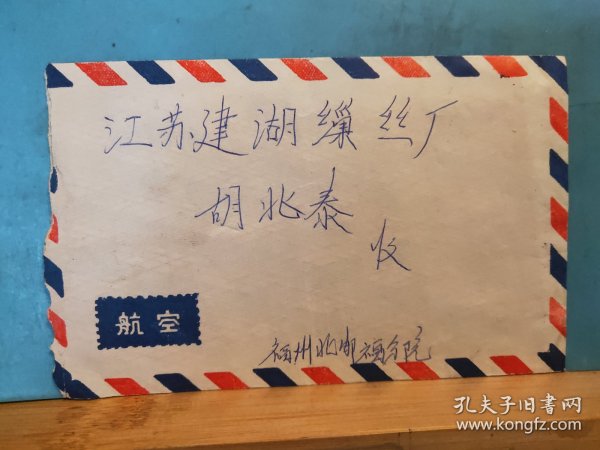 江苏建湖缫丝厂
胡兆泰
收
航空
福州北郊福分院
孔夫子旧书网
www.kongfz.com